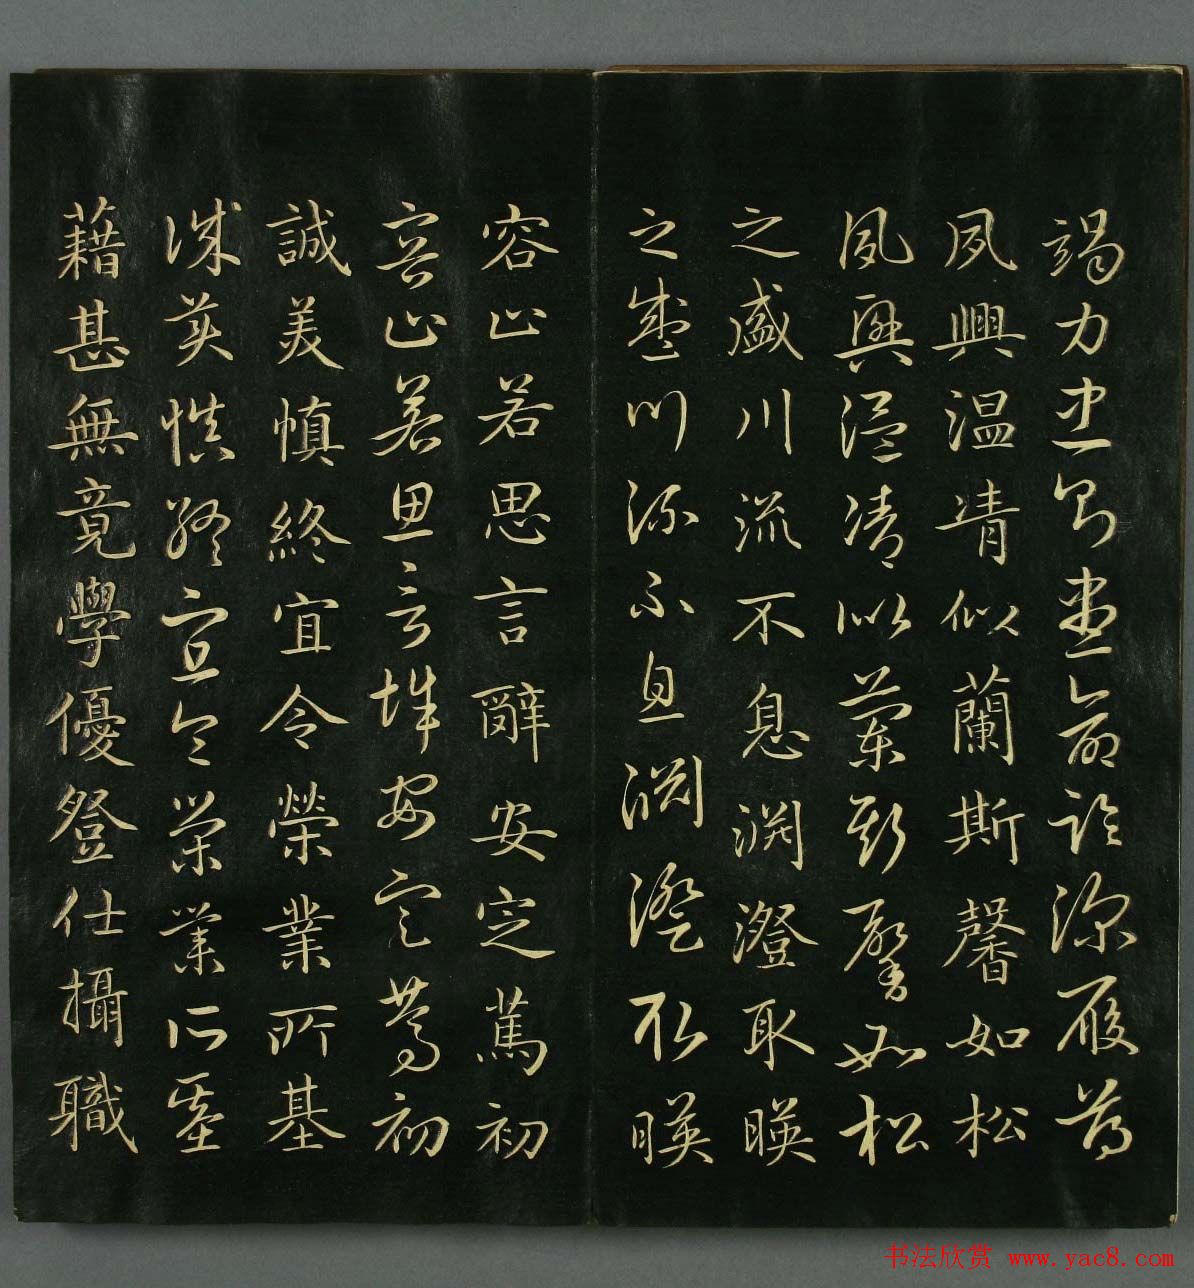 竭力忠則盡命臨深履薄
夙興温凊似蘭斯馨如松
夙興温凊似蘭斯馨如松
之盛川流不息淵澄取暎
之盛川流不息淵澄取暎
容止若思言辭安定篤初
容止若思言辭安定篤初
誠美慎終宜令榮業所基
誠美慎終宜令榮業所基
藉甚無竟學優登仕攝職
书法欣赏 www.yac8.com